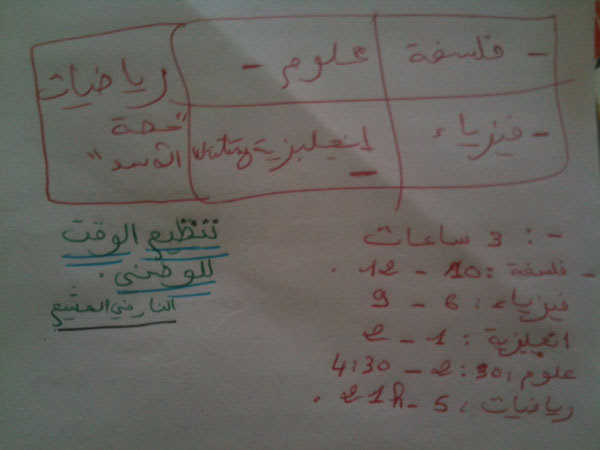 - فلسفة
علوم -
رياضيات
"حصة الأسد"
- فيزياء
انجليزية writing -
تنظيم الوقت
للوطني.
النار في المشيع
- : 3 ساعات
- فلسفة : 10 - 12 .
فيزياء : 6 - 9
انجليزية : 1 - 2
علوم : 2:30 - 4:30
رياضيات : 5 - 21h .